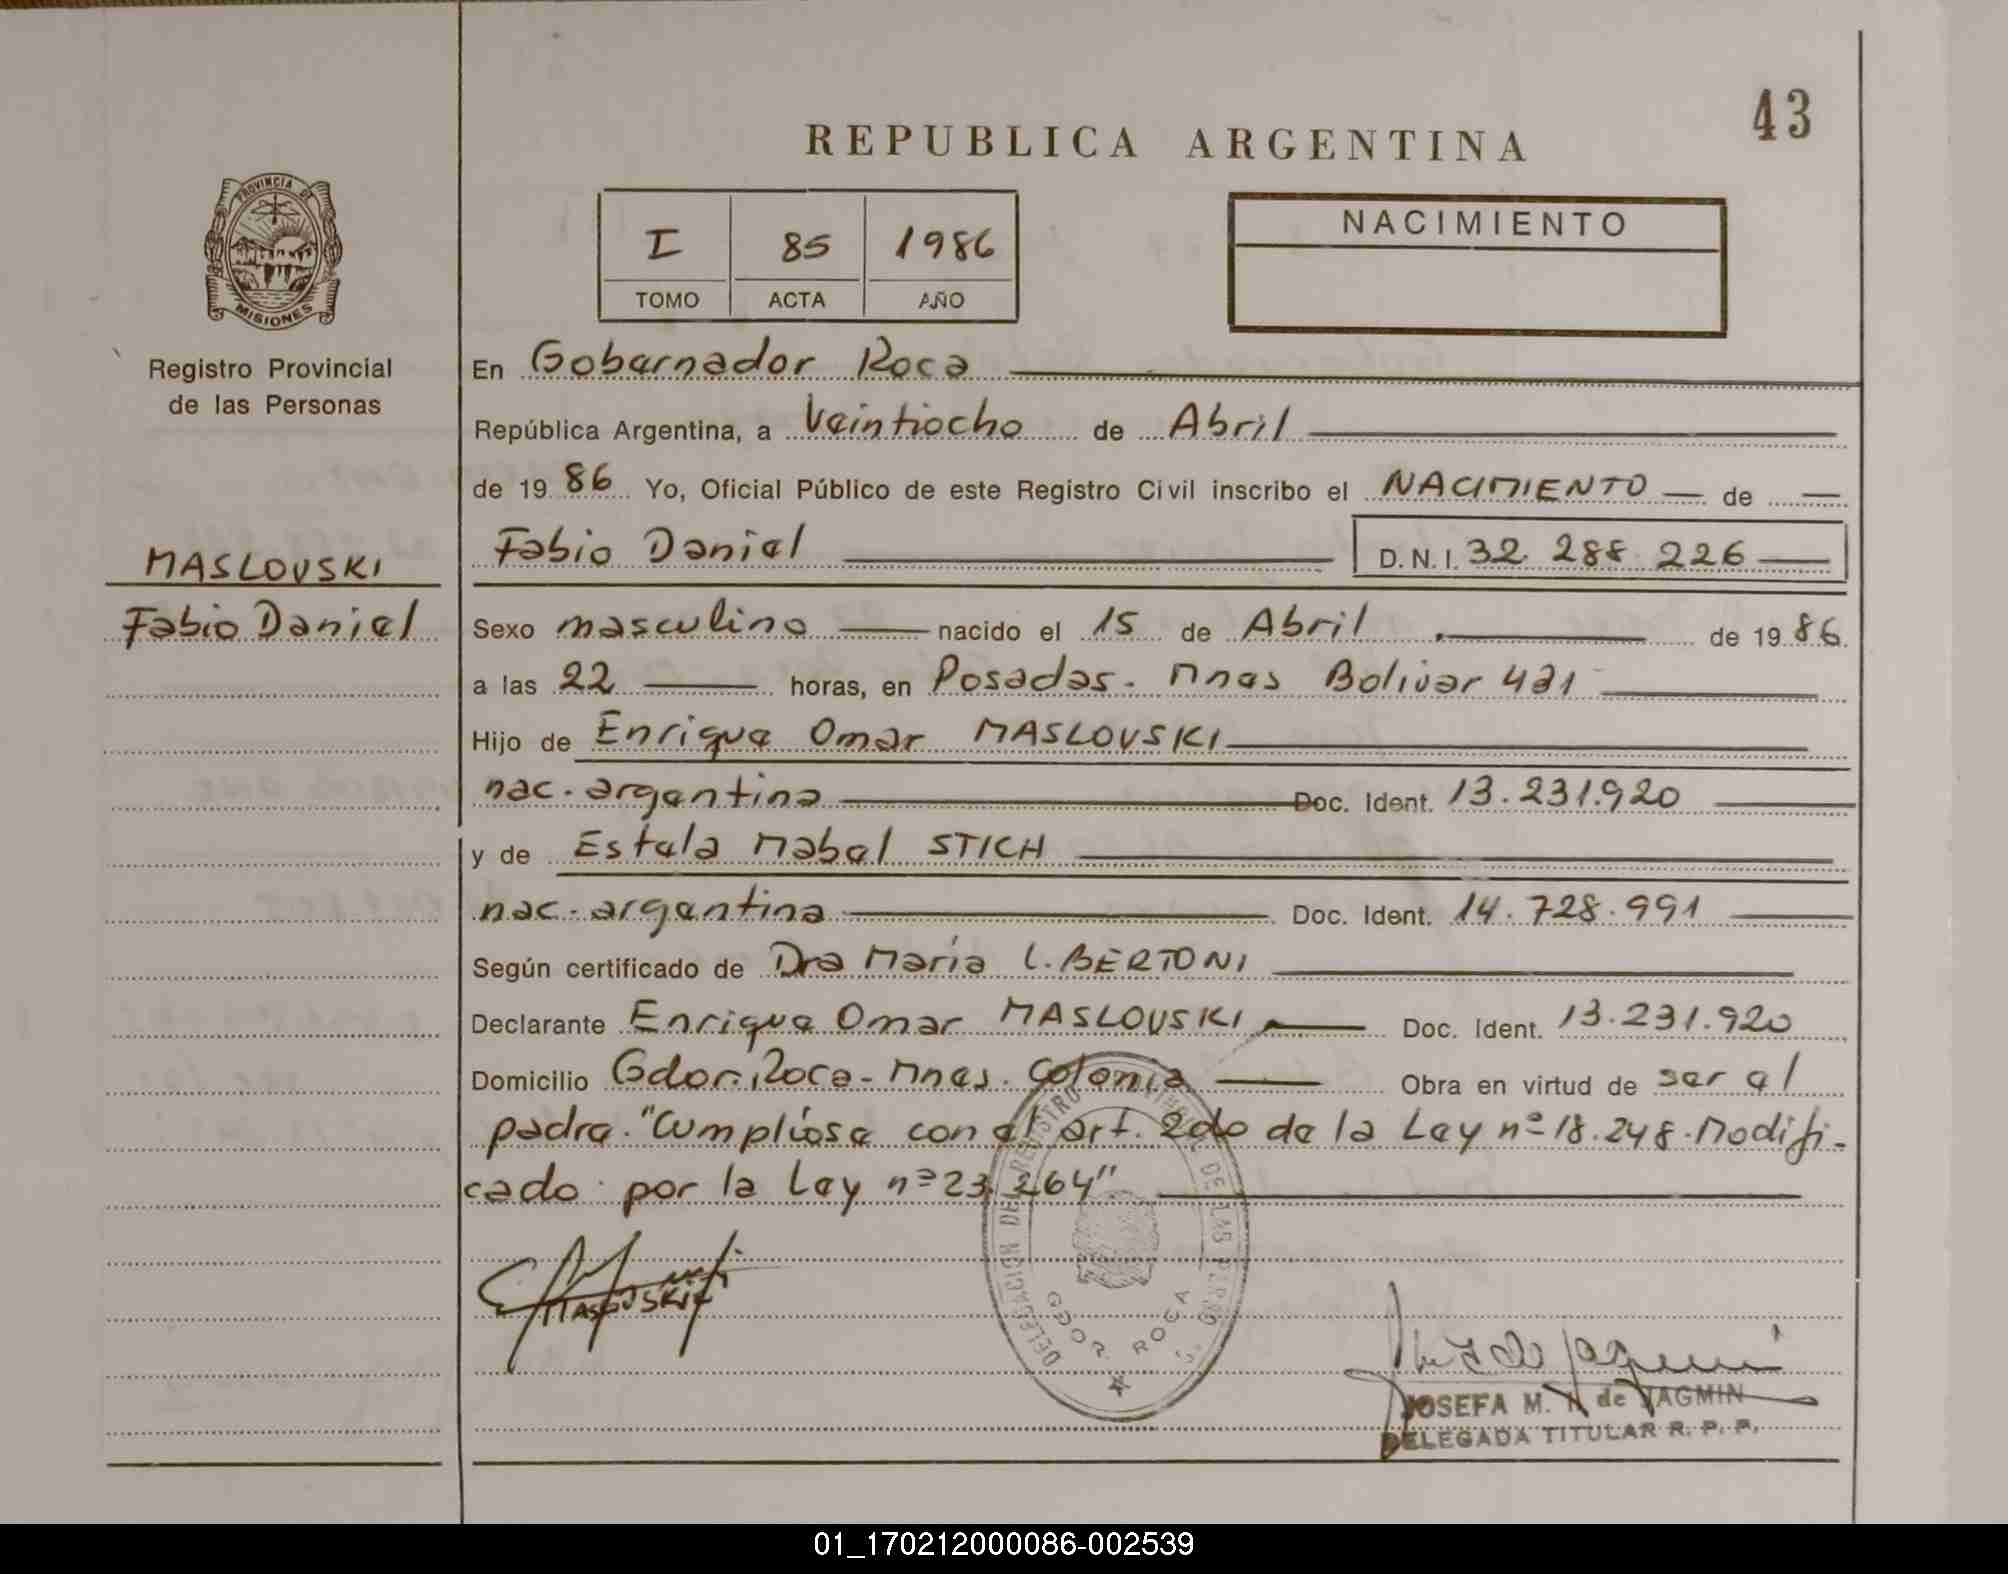 43
REPUBLICA ARGENTINA
PROVINCIA DE
MISIONES
I 85 1986
TOMO ACTA AÑO
NACIMIENTO
Registro Provincial
de las Personas
En Gobernador Roca
República Argentina, a Veintiocho de Abril
de 19 86 Yo, Oficial Público de este Registro Civil inscribo el NACIMIENTO de
MASLOVSKI
Fabio Daniel
Fabio Daniel D.N.I. 32.288.226
Sexo masculino nacido el 15 de Abril de 19 86.
a las 22 horas, en Posadas. Mnes Bolivar 421
Hijo de Enrique Omar MASLOVSKI
nac. argentina Doc. Ident. 13.231.920
y de Estela Mabel STICH
nac. argentina Doc. Ident. 14.728.991
Según certificado de Dra María L. BERTONI
Declarante Enrique Omar MASLOVSKI Doc. Ident. 13.231.920
Domicilio Gdor. Roca - Mnes. Colonia Obra en virtud de ser el
padre. "Cumplíose con el art. 2do de la Ley nº 18.248. Modifi-
cado por la Ley nº 23.264"
DELEGACION DEL REGISTRO DE LAS PERSONAS
GDOR. ROCA
MASLOVSKI
JOSEFA M. de JAGMIN
DELEGADA TITULAR R. P. P.
01_170212000086-002539